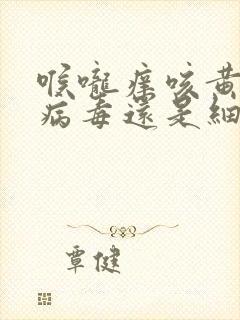 喉嚨痒咳黃
病毒還是細
覃健